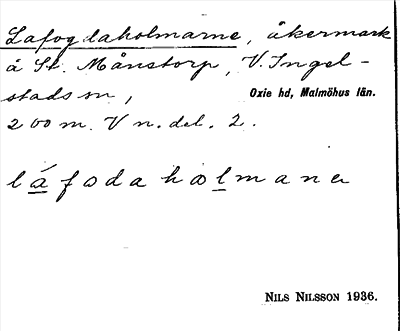 Lafogdaholmarne, åkermark
å St. Månstorp, V. Ingel-
stads sn,
Oxie hd, Malmöhus län.
200 m. V n. del. 2.
láfodaholmana
NILS NILSSON 1936.